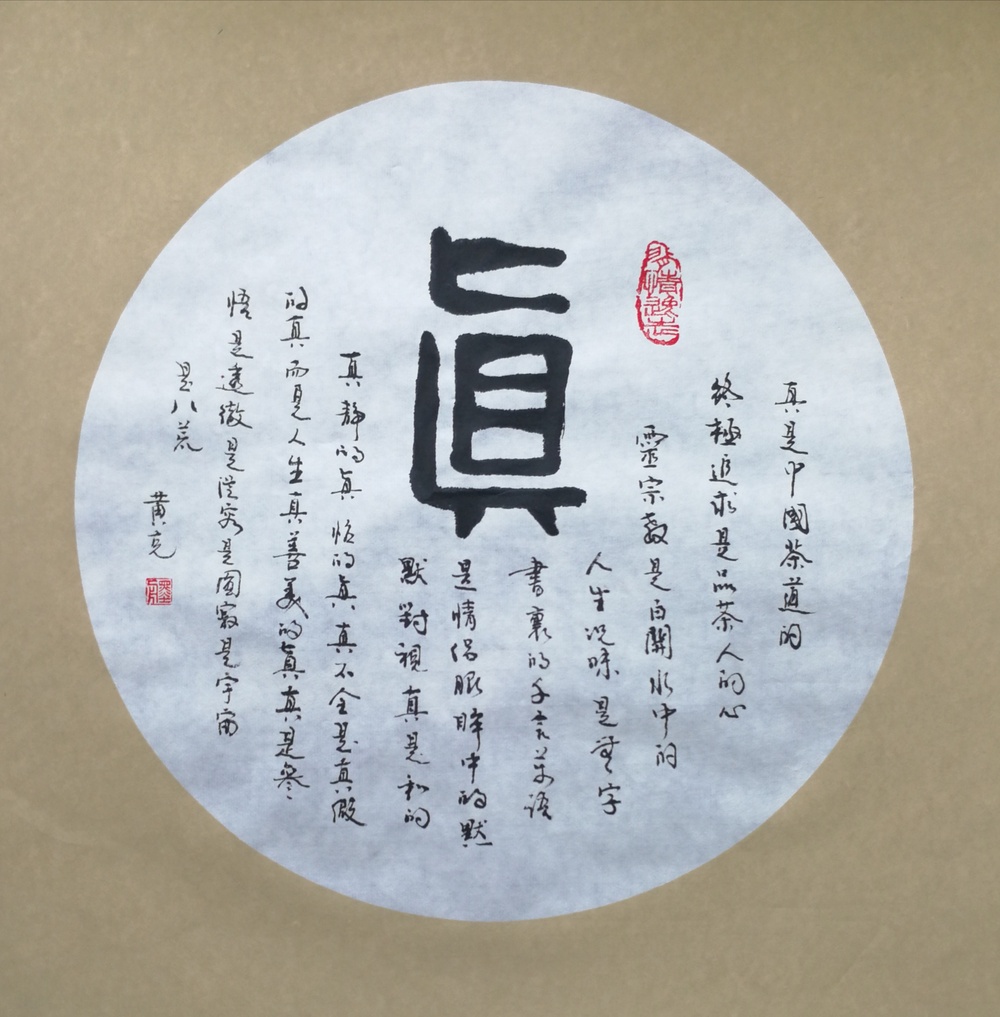 眞
真是中國茶道的
終極追求是品茶人的心
靈宗教是白開水中的
人生況味是無字
書裏的千言萬語
是情侶眼眸中的默
默對視真是和的
真靜的眞怡的眞真不全是真假
的真而是人生真善美的眞真是參
悟是透徹是從容是圓寂是宇宙
是八荒
黄亮